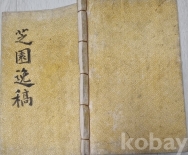 芝園逸稿
kobay